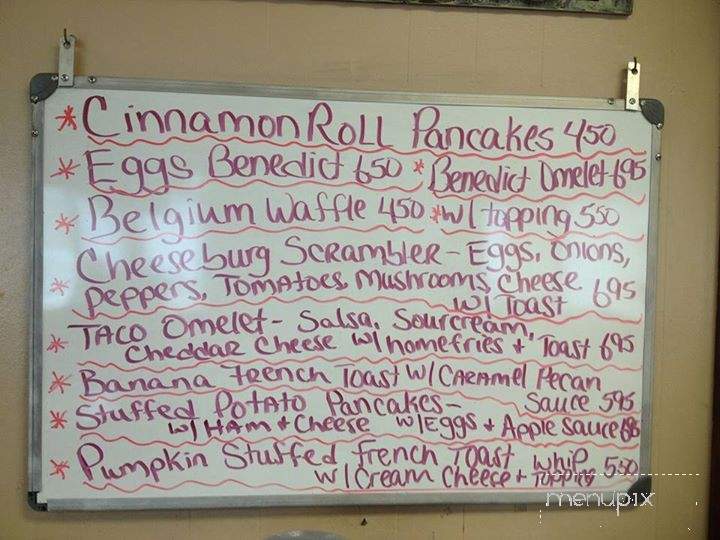 * Cinnamon Roll Pancakes 450
* Eggs Benedict 650 * Benedict Omelet 695
* Belgium Waffle 450 * w/ topping 550
Cheeseburg Scrambler - Eggs, Onions,
* Peppers, Tomatoes, Mushrooms, Cheese 695
w/ Toast
* Taco Omelet - Salsa, Sourcream,
Cheddar Cheese w/ homefries + Toast 695
* Banana French Toast w/ Caramel Pecan
Sauce 595
* Stuffed Potato Pancakes -
w/ Ham + Cheese w/ Eggs + Apple Sauce
* Pumpkin Stuffed French Toast Whip 550
w/ Cream Cheese + Topping
menupix